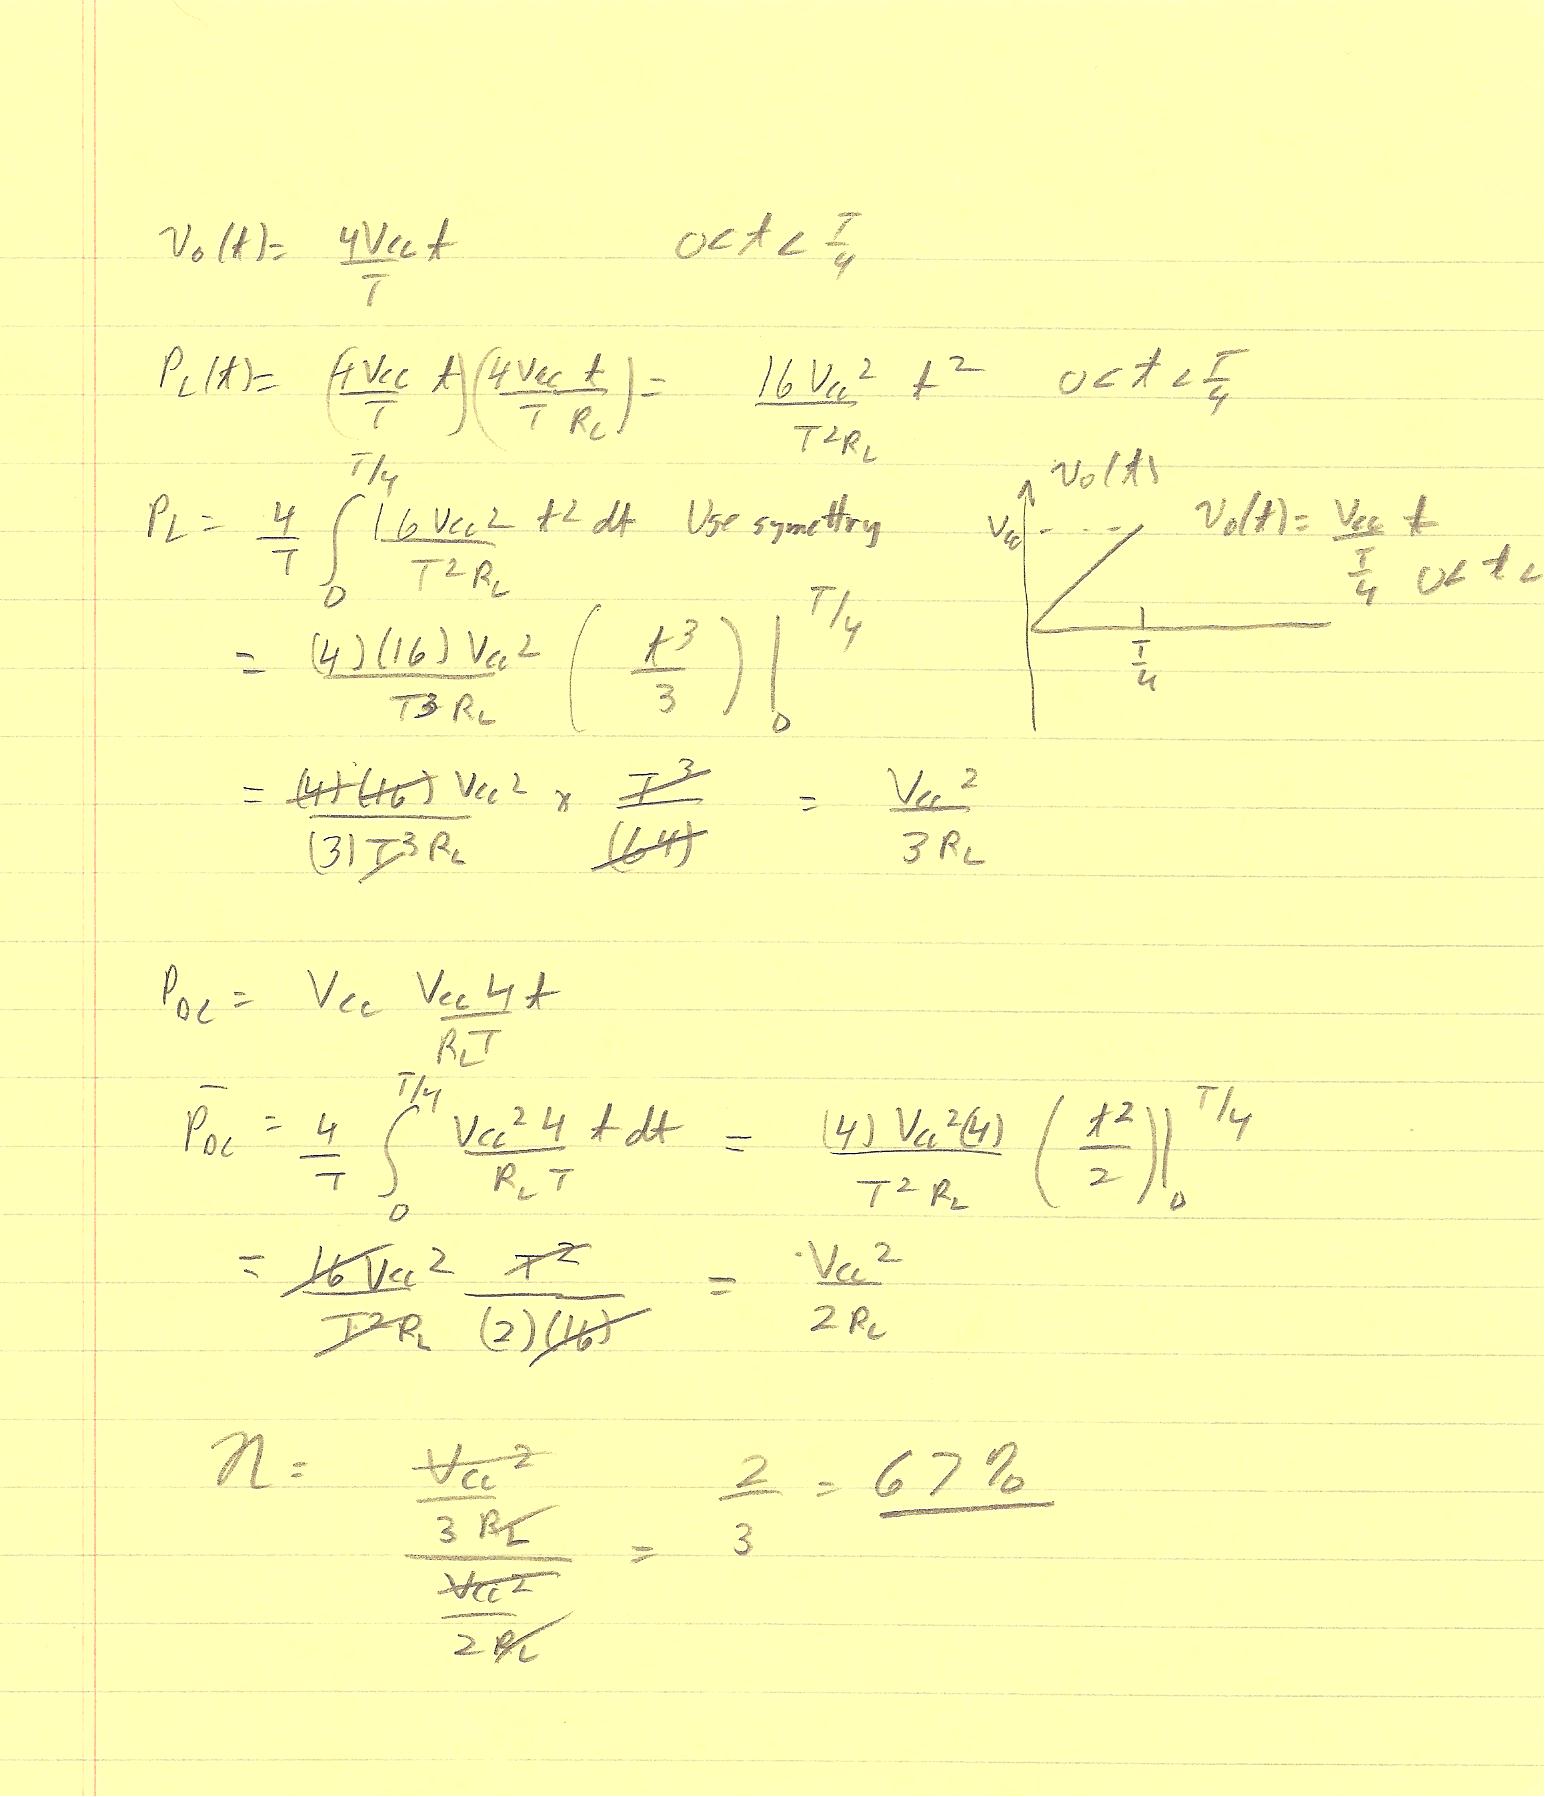 v₀(t)= 4Vcc t / T 0<t<T/4
P_L(t)= (4Vcc t / T)(4Vcc t / T R_L) = 16 Vcc² / T²R_L t² 0<t<T/4
P_L = 4/T ∫₀^{T/4} 16 Vcc² / T² R_L t² dt Use symettry
= (4)(16) Vcc² / T³ R_L ( t³/3 ) |₀^{T/4}
= (4)(16) Vcc² / (3) T³ R_L × T³ / (64) = Vcc² / 3 R_L
v₀(t)
Vcc
v₀(t)= Vcc / (T/4) t
0< t <
T/4
P_DC = Vcc Vcc 4 t / R_L T
P̄_DC = 4/T ∫₀^{T/4} Vcc² 4 / R_L T t dt = (4) Vcc² (4) / T² R_L ( t²/2 ) |₀^{T/4}
= 16 Vcc² / T² R_L T² / (2)(16) = Vcc² / 2 R_L
η = (Vcc² / 3 R_L) / (Vcc² / 2 R_L) = 2/3 = 67%